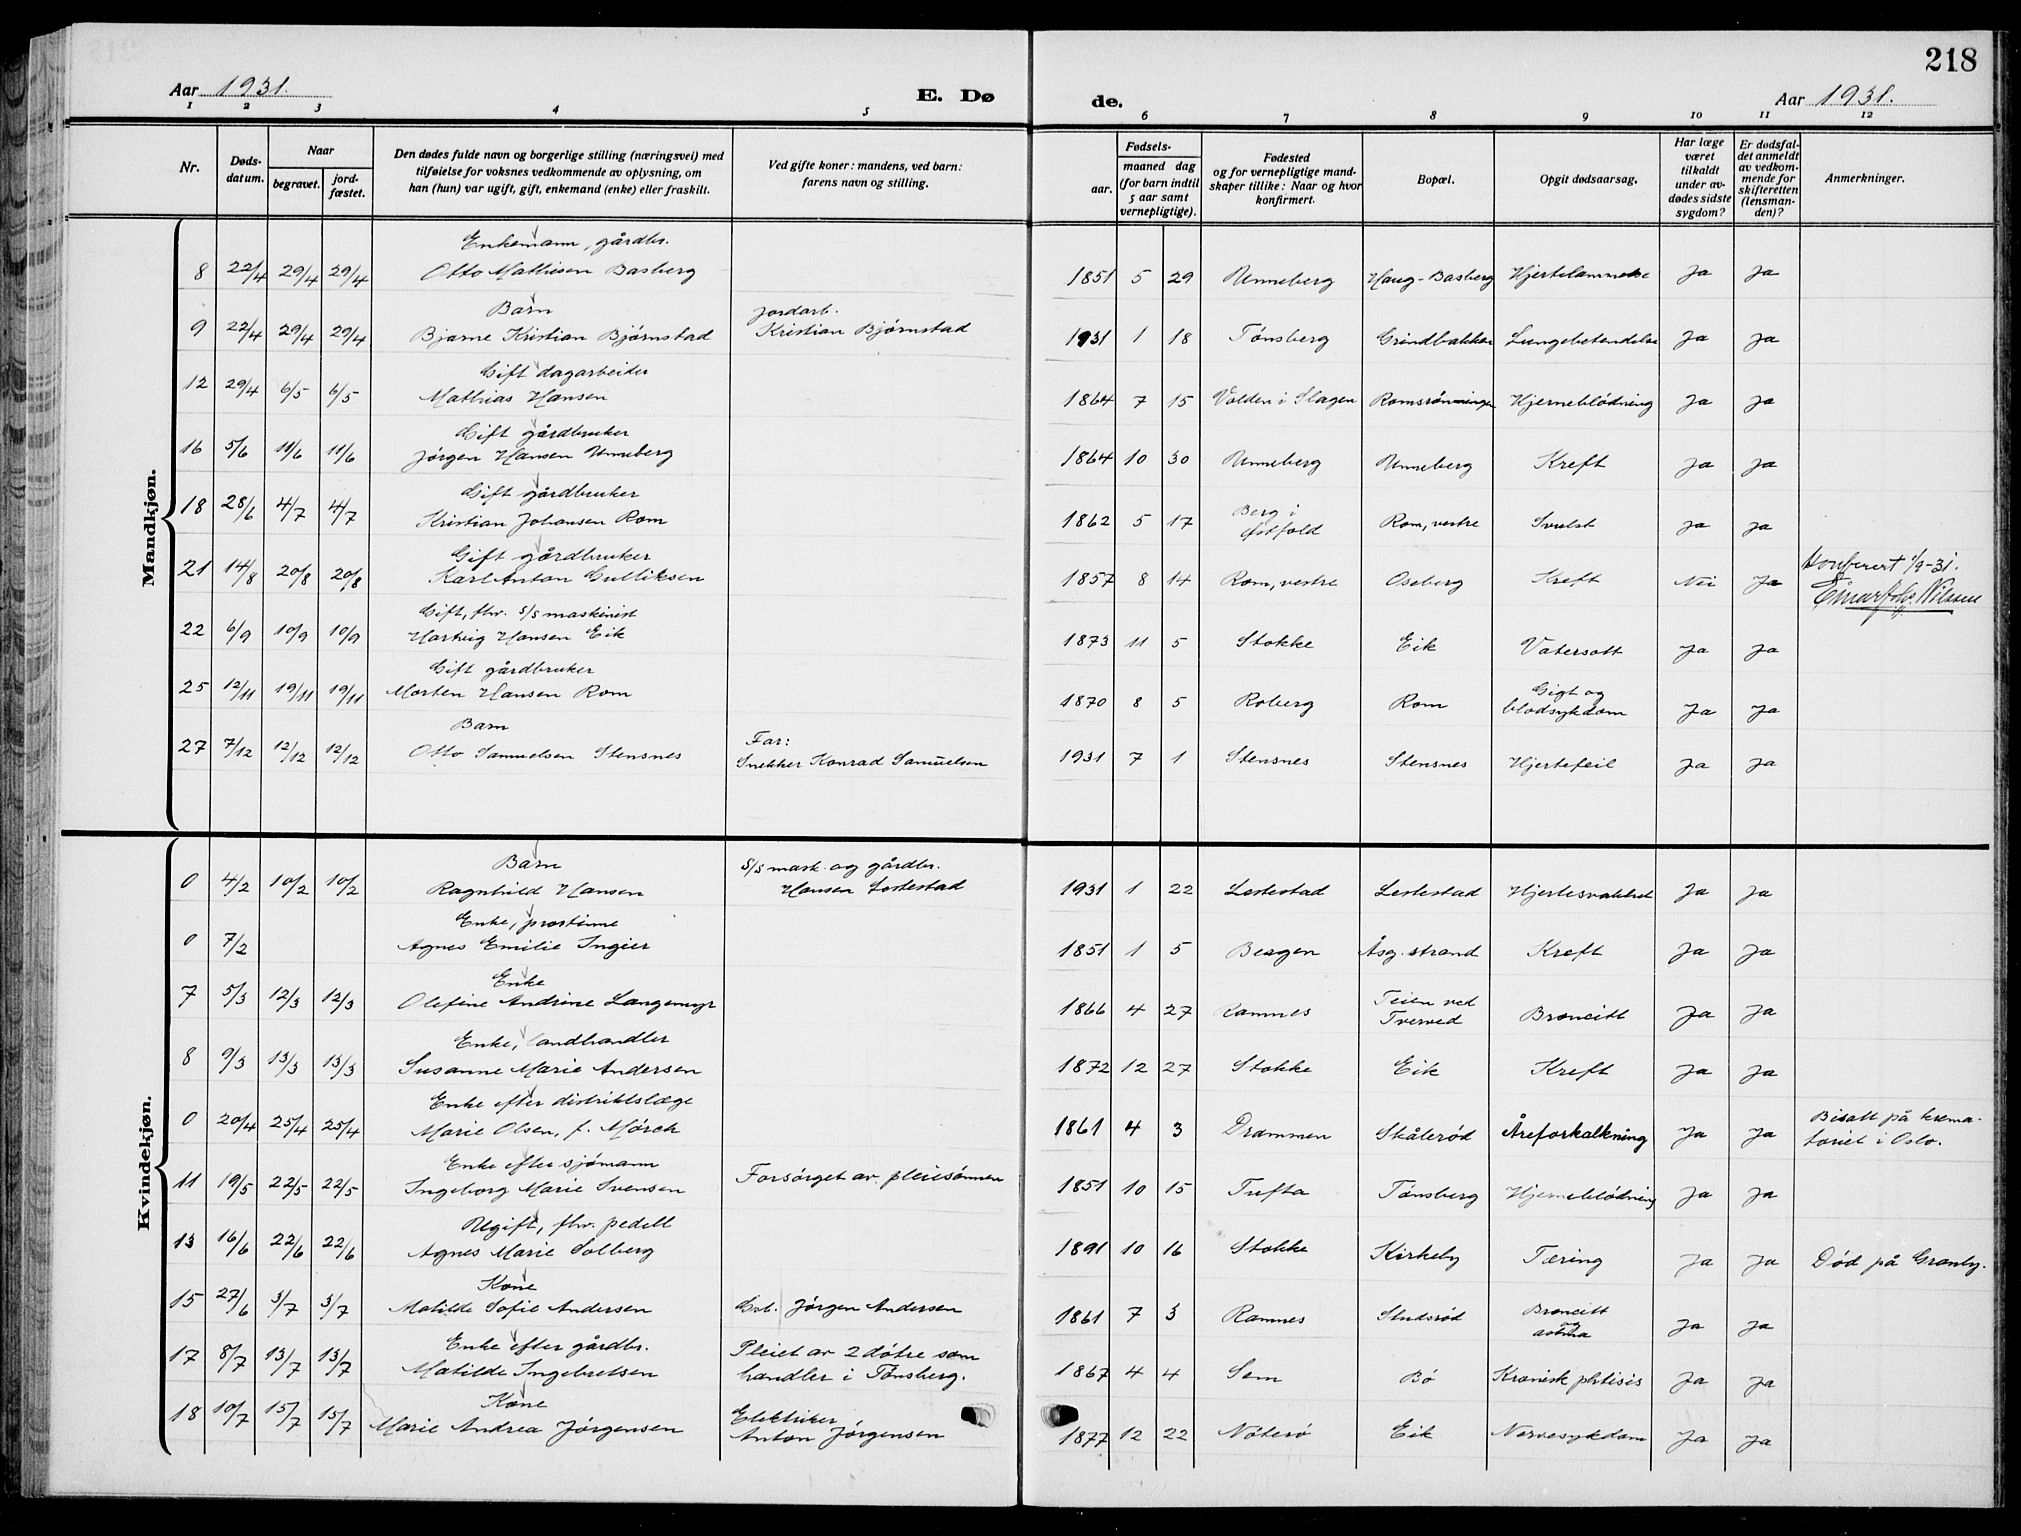 218
Aar 1931. E. Dø de. Aar 1931.
1 2 3 4 5 6 7 8 9 10 11 12
Nr. Døds-datum. Naar begravet. jord-fæstet. Den dødes fulde navn og borgerlige stilling (næringsvei) med tilføielse for voksnes vedkommende av oplysning, om han (hun) var ugift, gift, enkemand (enke) eller fraskilt. Ved gifte koner: mandens, ved barn: farens navn og stilling. Fødsels- aar. maaned dag (for barn indtil 5 aar samt vernepligtige). Fødested og for vernepligtige mand-skaper tillike: Naar og hvor konfirmert. Bopæl. Opgit dødsaarsag. Har læge været tilkaldt under av-dødes sidste sygdom? Er dødsfal-det anmeldt av vedkom-mende for skifteretten (lensman-den)? Anmerkninger.
Mandkjøn.
Enkemann, gårdbr.
8 22/4 29/4 29/4 Otto Mathisen Basberg 1851 5 29 Unneberg Haug-Basberg Hjertelammelse Ja Ja
Barn Jordarb.
9 22/4 29/4 29/4 Bjarne Kristian Bjørnstad Kristian Bjørnstad 1931 1 18 Tønsberg Grindbakken Lungebetendelse Ja Ja
Gift dagarbeider
12 29/4 6/5 6/5 Mathias Hansen 1864 7 15 Volden i Slagen Romsrønningen Hjerneblødning Ja Ja
Gift gårdbruker
16 5/6 11/6 11/6 Jørgen Hansen Unneberg 1864 10 30 Unneberg Unneberg Kreft Ja Ja
Gift gårdbruker
18 28/6 4/7 4/7 Kristian Johansen Rom 1862 5 17 Berg i Østfold Rom, vestre Svulst Ja Ja
Gift gårdbruker
21 14/8 20/8 20/8 Karl Anton Gulliksen 1857 8 14 Rom, vestre Oseberg Kreft Nei Ja Konferert 1/9-31.
Nilssen
Gift, fhv. s/s maskinist
22 6/9 10/9 10/9 Hartvig Hansen Eik 1873 11 5 Stokke Eik Vatersott Ja Ja
Gift gårdbruker
25 12/11 19/11 19/11 Morten Hansen Rom 1870 8 5 Roberg Rom Gigt og blodsykdom Ja Ja
Barn Far:
27 7/12 12/12 12/12 Otto Samuelsen Stensnes Snekker Konrad Samuelsen 1931 7 1 Stensnes Stensnes Hjertefeil Ja Ja
Kvindekjøn.
Barn s/s mask. og gårdbr.
0 4/2 10/2 10/2 Ragnhild Hansen Hansen Lestestad 1931 1 22 Lestestad Lestestad Hjertesvakhet Ja Ja
Enke, prestinne
0 7/2 Agnes Emilie Ingier 1851 1 5 Bergen Åsg.strand Kreft Ja Ja
Enke
7 5/3 12/3 12/3 Olefine Andrine Langemyr 1866 4 27 Ramnes Teien ved Tverved Broncitt Ja Ja
Enke, landhandler
8 9/3 13/3 13/3 Susanne Marie Andersen 1872 12 27 Stokke Eik Kreft Ja Ja
Enke efter distriktslæge
0 20/4 25/4 25/4 Marie Olsen, f. Mörch 1861 4 3 Drammen Skålerød Åreforkalkning Ja Ja Bisatt på krema-
toriet i Oslo.
Enke efter sjømann
11 19/5 22/5 22/5 Ingeborg Marie Svensen Forsørget av pleiesønnen 1851 10 15 Tufta Tønsberg Hjerneblødning Ja Ja
Ugift, fhv. pedell
13 16/6 22/6 22/6 Agnes Marie Solberg 1891 10 16 Stokke Kirkeby Tæring Ja Ja Død på Granly.
Kone
15 27/6 3/7 3/7 Matilde Sofie Andersen Grb. Jørgen Andersen 1861 7 3 Ramnes Studsrød Broncitt og astma Ja Ja
Enke efter gårdbr. Pleiet av 2 døtre som
17 8/7 13/7 13/7 Matilde Ingebretsen handler i Tønsberg. 1867 4 4 Sem Bø Kronisk phtisis Ja Ja
Kone Elektriker
18 10/7 15/7 15/7 Marie Andrea Jørgensen Anton Jørgensen 1877 12 22 Nøterø Eik Nervesykdom Ja Ja